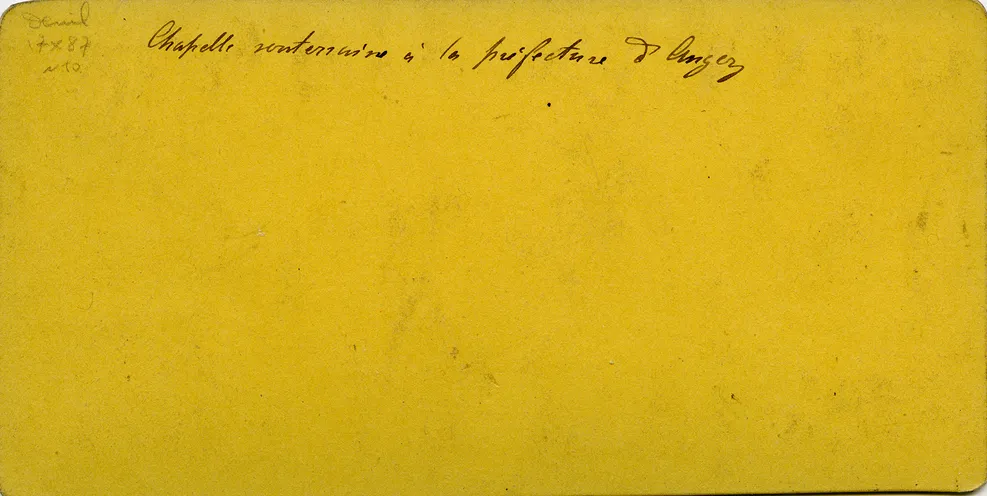 17x87
n10
Chapelle souterraine à la préfecture d'Angers